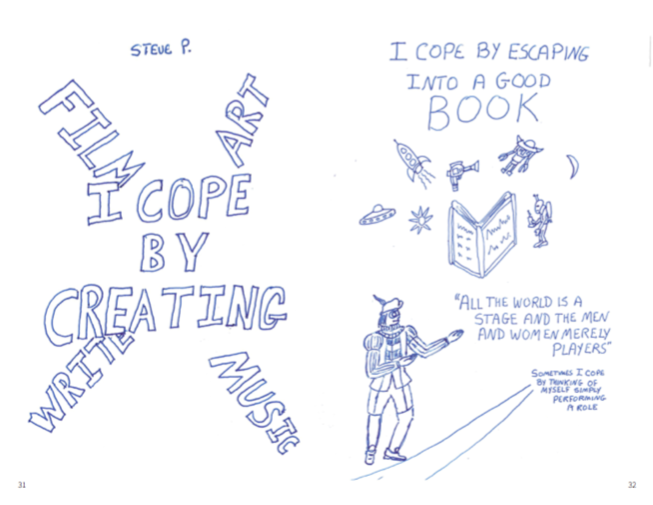 STEVE P.
FILM
ART
I COPE
BY
CREATING
WRITE
MUSIC
31
I COPE BY ESCAPING
INTO A GOOD
BOOK
"ALL THE WORLD IS A
STAGE AND THE MEN
AND WOMEN MERELY
PLAYERS"
SOMETIMES I COPE
BY THINKING OF
MYSELF SIMPLY
PERFORMING
A ROLE
32